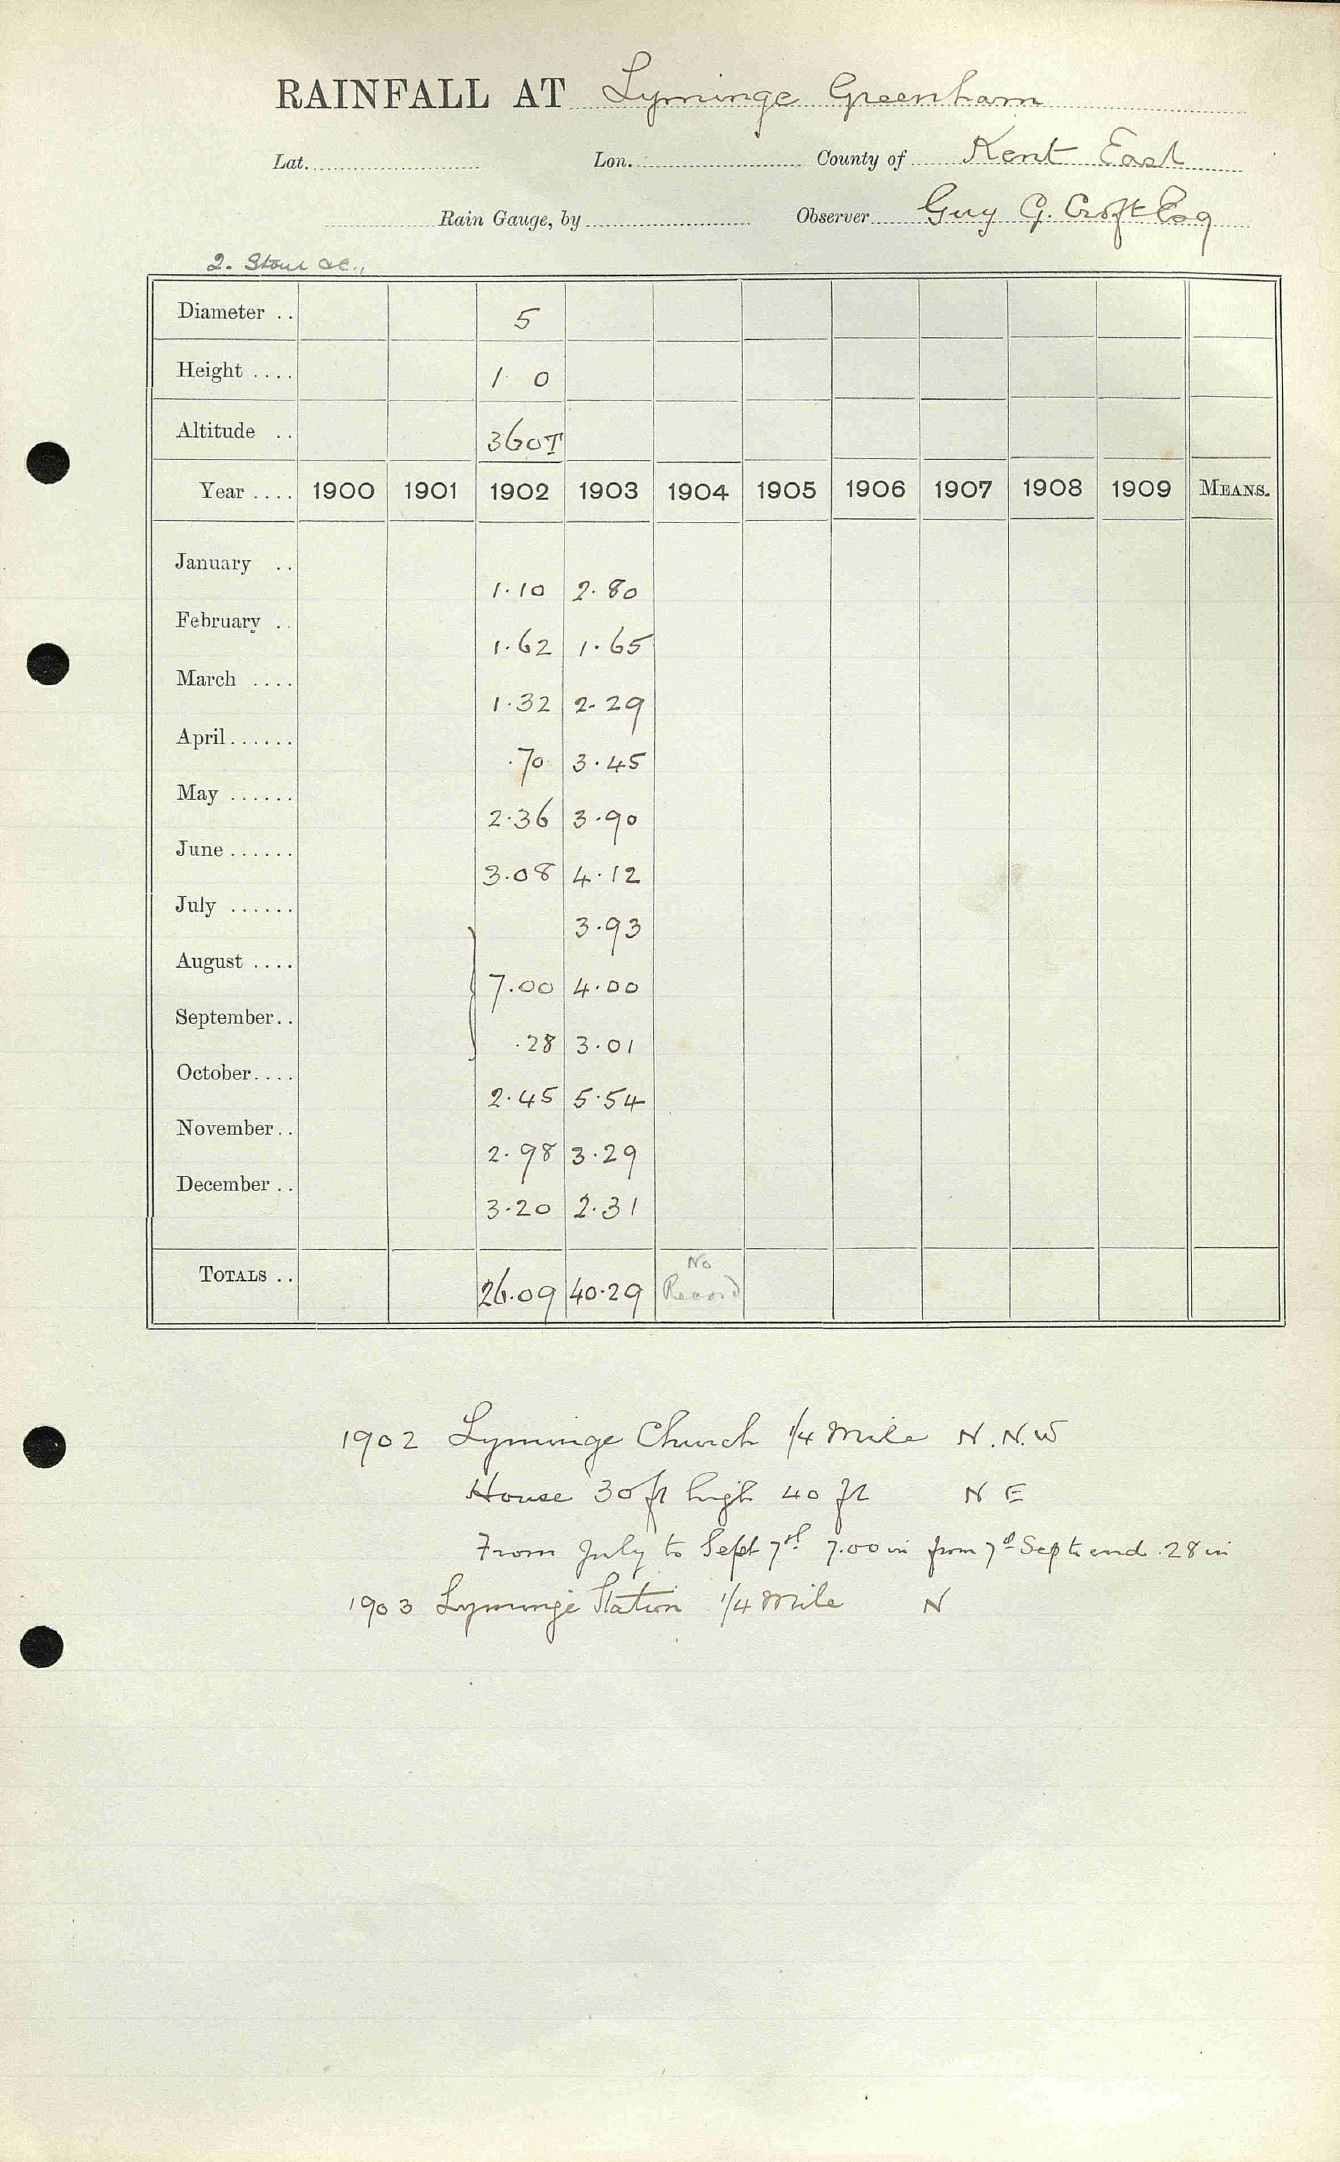 RAINFALL AT Lyminge Greenham
Lat. Lon. County of Kent East
Rain Gauge, by Observer Guy G. Croft Esq
2. Stour &c.,
Diameter .. 5
Height .... 1 0
Altitude .. 360T
Year .... 1900 1901 1902 1903 1904 1905 1906 1907 1908 1909 MEANS.
January .. 1.10 2.80
February .. 1.62 1.65
March .... 1.32 2.29
April...... .70 3.45
May ...... 2.36 3.90
June...... 3.08 4.12
July ...... 3.93
August .... 7.00 4.00
September.. .28 3.01
October.... 2.45 5.54
November.. 2.98 3.29
December .. 3.20 2.31
TOTALS .. 26.09 40.29 No Record
1902 Lyminge Church 1/4 Mile N.N.W
House 30 ft high 40 ft N E
From July to Sept 7th 7.00 in from 7th Sept to end .28 in
1903 Lyminge Station 1/4 Mile N